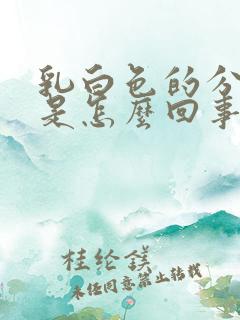 乳白色的分
是怎麼回事
桂纶鎂
未经同意禁止转载